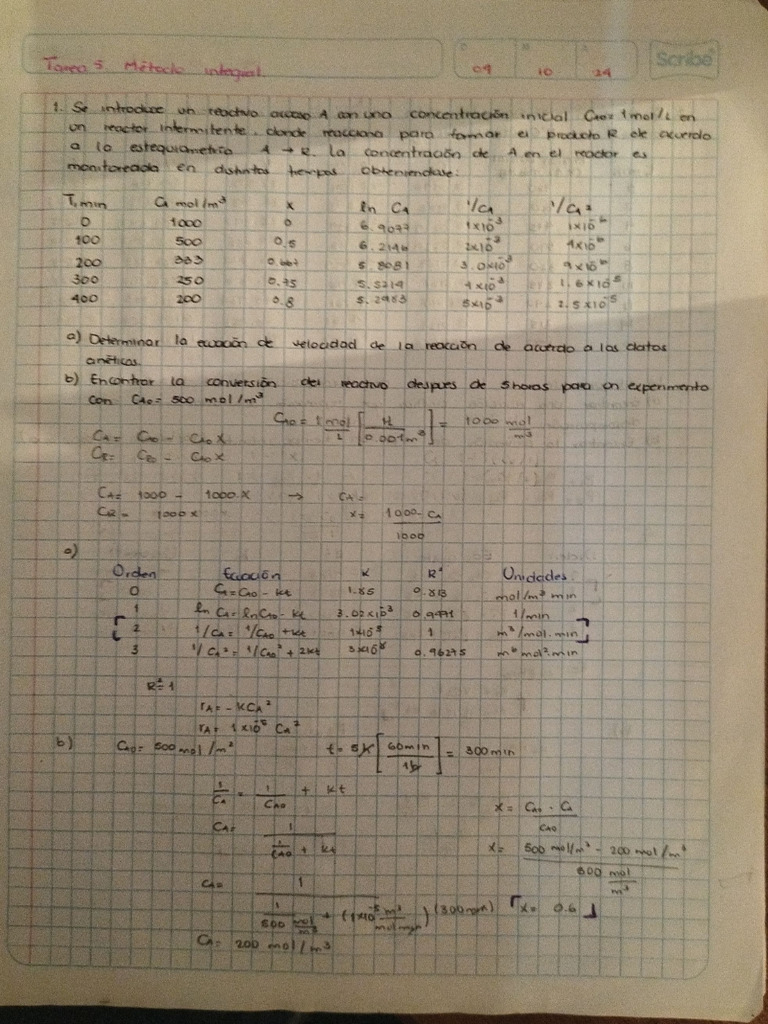 Tarea 5 Método integral
09 10 24
Scribe
1. Se introduce un reactivo acuoso A con una concentración inicial CA0= 1mol/L en
un reactor intermitente, donde reacciona para formar el producto R de acuerdo
a la estequiometría A → R. La concentración de A en el reactor es
monitoreada en distintos tiempos obteniendose:
T, min CA mol/m³ x ln CA 1/CA 1/CA²
0 1000 0 6.9077 1x10⁻³ 1x10⁻⁶
100 500 0.5 6.2146 2x10⁻³ 4x10⁻⁶
200 333 0.667 5.8081 3.0x10⁻³ 9x10⁻⁶
300 250 0.75 5.5214 4x10⁻³ 1.6x10⁻⁵
400 200 0.8 5.2983 5x10⁻³ 2.5x10⁻⁵
a) Determinar la ecuación de velocidad de la reacción de acuerdo a los datos
cinéticos.
b) Encontrar la conversión del reactivo despues de 5 horas para un experimento
con CA0= 500 mol/m³
CA0= 1 mol/L [1L/0.001m³] = 1000 mol/m³
CA= CA0 - CA0X
CR= CR0 - CA0X
CA= 1000 - 1000X → CA=
CR= 1000X x= 1000-CA/1000
a)
Orden Ecuación K R² Unidades
0 CA=CA0-kt 1.85 0.813 mol/m³ min
1 ln CA=lnCA0-kt 3.02x10⁻³ 1/min
2 1/CA= 1/CA0 +kt 1x10⁻⁵ 1 m³/mol.min
3 1/CA²= 1/CA0² + 2kt 3x10⁻⁸ 0.96275 m⁶ mol².min
R²=1
rA= -KCA²
rA= 1x10⁻⁵ CA²
b) CA0= 500 mol/m³ t= 5h [60min/1h] = 300min
1/CA = 1/CA0 + kt
x= CA0 - CA/CA0
CA= 1/(1/CA0 + kt)
x= 500 mol/m³ - 200 mol/m³/500 mol/m³
CA= 1/(1/500 mol/m³ + (1x10⁻⁵ m³/mol min)(300min)) x= 0.6
CA= 200 mol/m³